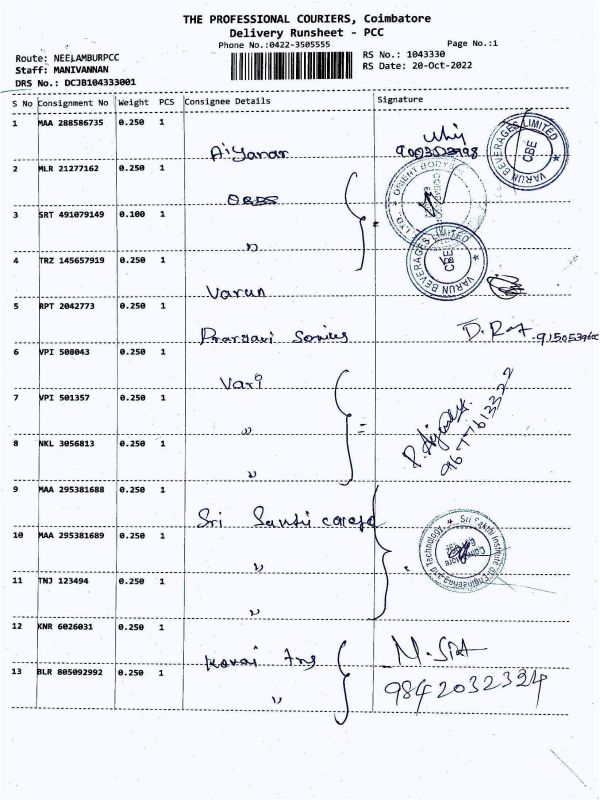 THE PROFESSIONAL COURIERS, Coimbatore
Delivery Runsheet - PCC
Phone No.:0422-3505555
Page No.:1
Route: NEELAMBURPCC
Staff: MANIVANNAN
DRS No.: DCJB104333001
RS No.: 1043330
RS Date: 20-Oct-2022
S No Consignment No Weight PCS Consignee Details Signature
1 MAA 288586735 0.250 1
Aiyanar 9003523998
VARUN BEVERAGES LIMITED CBE
2 MLR 21277162 0.250 1
ORIENT BODYS LTD.,
3 SRT 491079149 0.100 1
"
VARUN BEVERAGES LIMITED CBE
4 TRZ 145657919 0.250 1
Varun
5 RPT 2042773 0.250 1
D. Raj
6 VPI 508043 0.250 1
Vari
7 VPI 501357 0.250 1
" =
8 NKL 3056813 0.250 1
"
9677613322
9 MAA 295381688 0.250 1
Sri
10 MAA 295381689 0.250 1
"
Sri Sakthi Institute of Engineering and Technology
Coimbatore
11 TNJ 123494 0.250 1
"
12 KNR 6026031 0.250 1
Kovai
13 BLR 805092992 0.250 1
"
9842032324